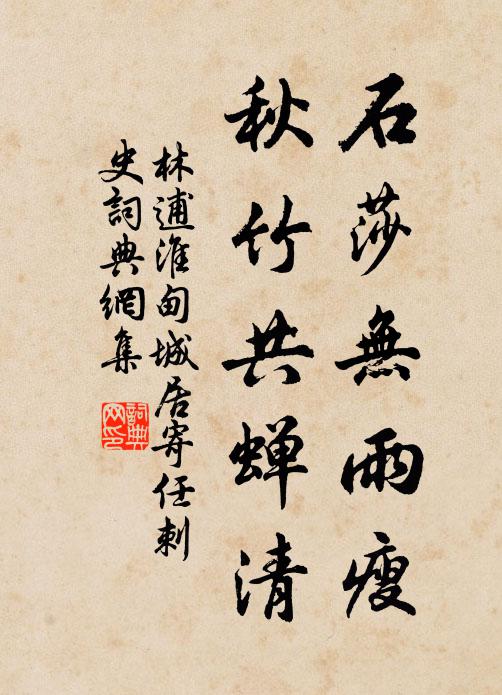 石莎無雨瘦
秋竹共蝉清
林逋淮甸城居寄任刺
史詞典網集
詞典
网印